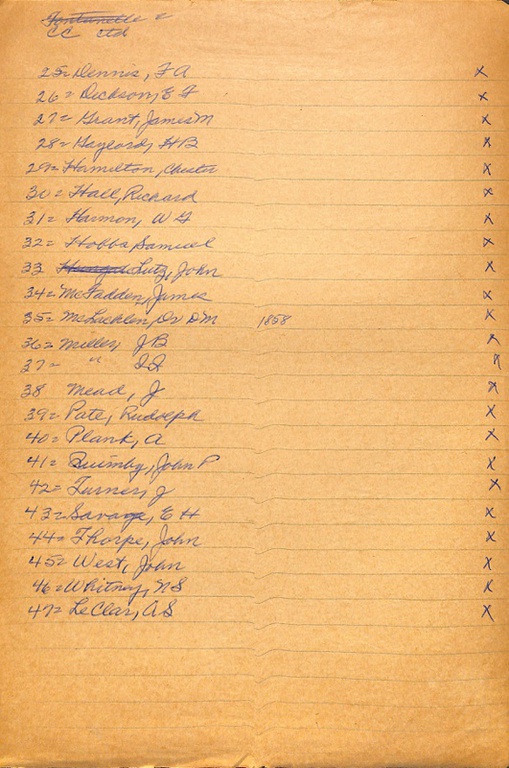 Fontanelle &
CC ctd
25= Dennis, F A X
26= Dickson, E F X
27= Grant, James M X
28= Gaylord, H B X
29= Hamilton, Chester X
30= Hall, Richard X
31= Harmon, W G X
32= Hobbs, Samuel X
33 Lutz, John X
34= McFadden, James X
35= McLachlen, Dr D M 1858 X
36= Miller, J B X
37= " X
38 Mead, J X
39= Pate, Rudolph X
40= Plank, A X
41= Quimby, John P X
42= Turner, J X
43= Savage, E H X
44= Thorpe, John X
45= West, John X
46= Whitney, N S X
47= LeClar, A S X